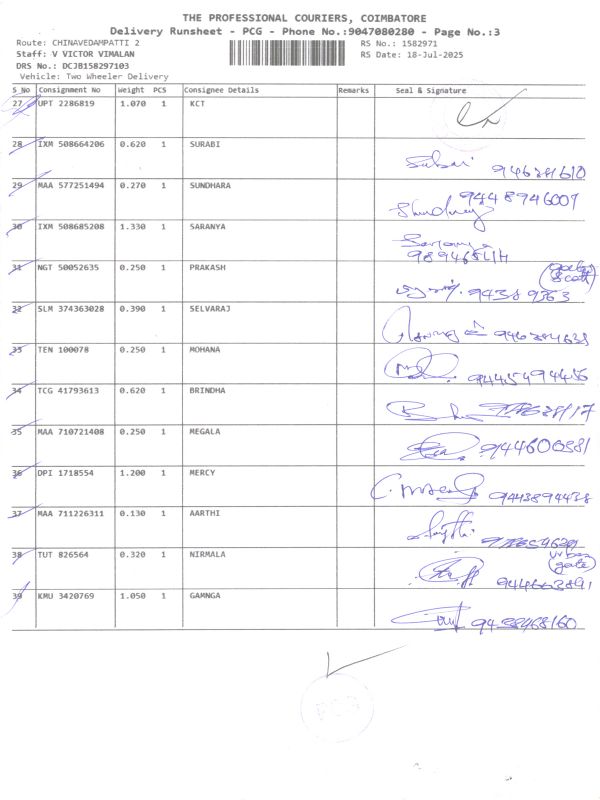 THE PROFESSIONAL COURIERS, COIMBATORE
Delivery Runsheet - PCG - Phone No.:9047080280 - Page No.:3
Route: CHINAVEDAMPATTI 2
RS No.: 1582971
Staff: V VICTOR VIMALAN
RS Date: 18-Jul-2025
DRS No.: DCJB158297103
Vehicle: Two Wheeler Delivery
S No Consignment No Weight PCS Consignee Details Remarks Seal & Signature
27 UPT 2286819 1.070 1 KCT
28 IXM 508664206 0.620 1 SURABI
29 MAA 577251494 0.270 1 SUNDHARA
9448946007
30 IXM 508685208 1.330 1 SARANYA
Saranya
31 NGT 50052635 0.250 1 PRAKASH
32 SLM 374363028 0.390 1 SELVARAJ
33 TEN 100078 0.250 1 MOHANA
9445494456
34 TCG 41793613 0.620 1 BRINDHA
35 MAA 710721408 0.250 1 MEGALA
36 DPI 1718554 1.200 1 MERCY
9443894438
37 MAA 711226311 0.130 1 AARTHI
38 TUT 826564 0.320 1 NIRMALA
39 KMU 3420769 1.050 1 GAMNGA
9438468160
PCG